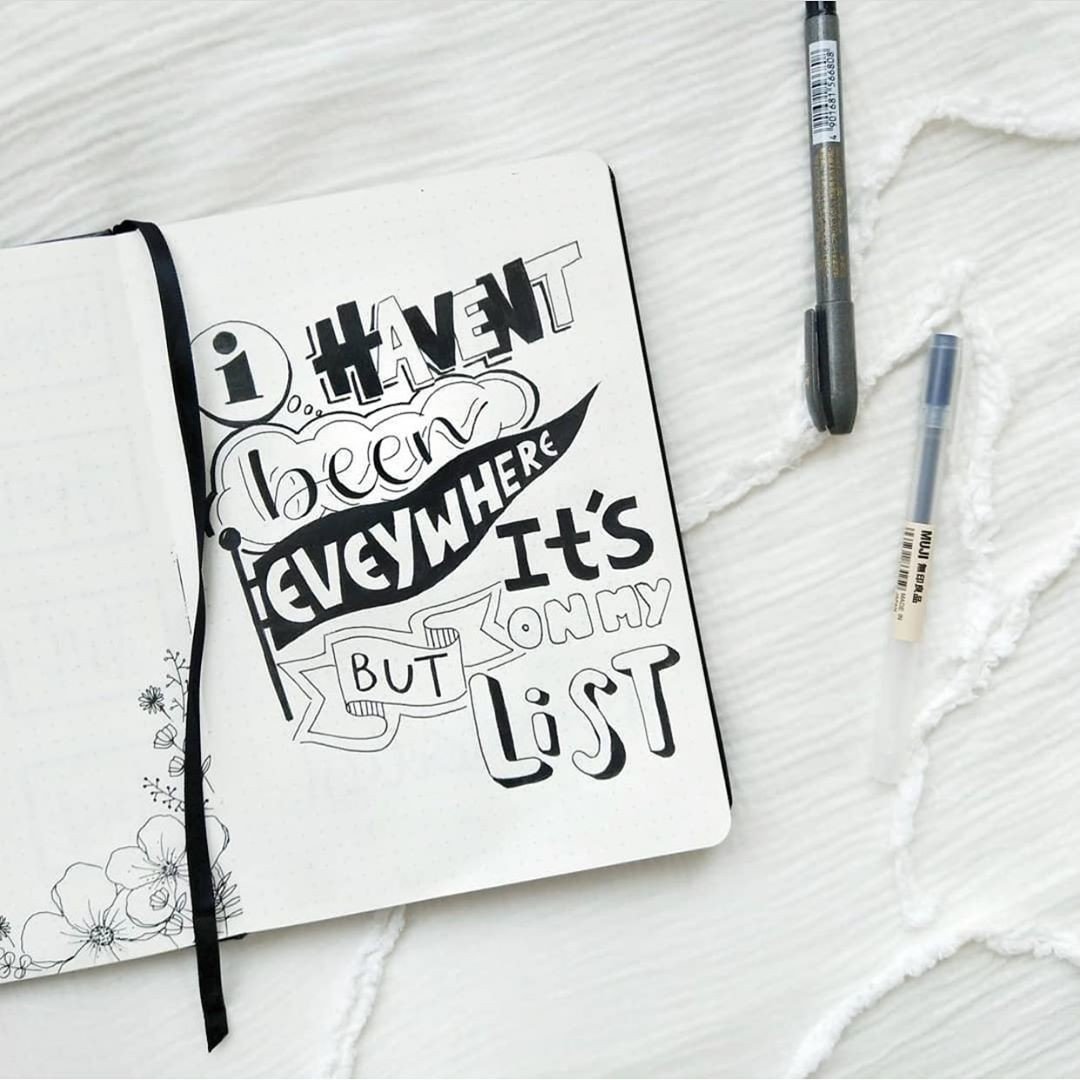 i HAVENT
been
EVEYWHERE
BUT
It's
ON MY
LiST
4 901681 566808
MUJI 無印良品
MADE IN
JAPAN